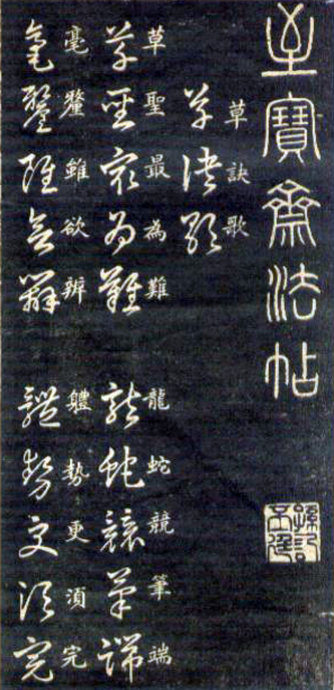 玉寶齋法帖
草訣歌
草訣歌
草聖最為難 龍蛇競筆端
草聖最為難 龍蛇競筆端
毫釐雖欲辨 軆勢更須完
毫釐雖欲辨 體勢更須完